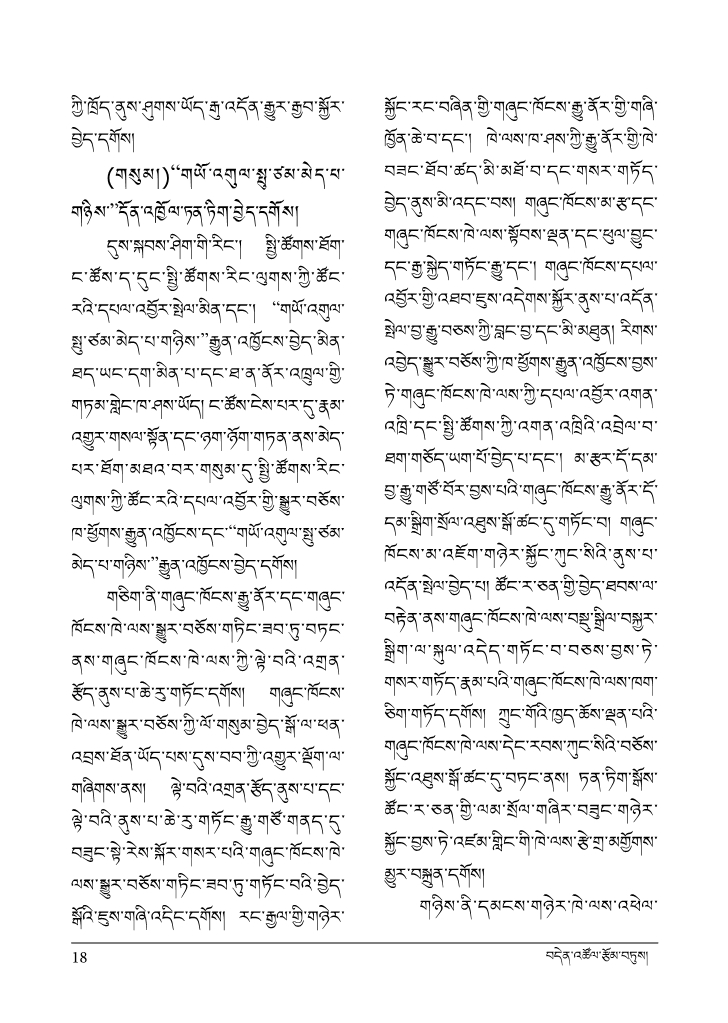 ཀྱི་ཁྲོད་ནུས་ཤུགས་ཡོད་རྒུ་འདོན་རྒྱུར་རྒྱབ་སྐྱོར་
བྱེད་དགོས།
(གསུམ།)“གཡོ་འགུལ་སྤུ་ཙམ་མེད་པ་
གཉིས་”དོན་འཁྱོལ་ཏན་ཏིག་བྱེད་དགོས།
དུས་སྐབས་ཤིག་གི་རིང་། སྤྱི་ཚོགས་ཐོག་
ང་ཚོས་ད་དུང་སྤྱི་ཚོགས་རིང་ལུགས་ཀྱི་ཚོང་
རའི་དཔལ་འབྱོར་སྤེལ་མིན་དང་། “གཡོ་འགུལ་
སྤུ་ཙམ་མེད་པ་གཉིས་”རྒྱུན་འཁྱོངས་བྱེད་མིན་
ཐད་ཡང་དག་མིན་པ་དང་ཐ་ན་ནོར་འཁྲུལ་གྱི་
གཏམ་གླེང་ཁ་ཤས་ཡོད། ང་ཚོས་ངེས་པར་དུ་རྣམ་
འགྱུར་གསལ་སྟོན་དང་ཉག་ཉོག་གཏན་ནས་མེད་
པར་ཐོག་མཐའ་བར་གསུམ་དུ་སྤྱི་ཚོགས་རིང་
ལུགས་ཀྱི་ཚོང་རའི་དཔལ་འབྱོར་གྱི་སྒྱུར་བཅོས་
ཁ་ཕྱོགས་རྒྱུན་འཁྱོངས་དང་“གཡོ་འགུལ་སྤུ་ཙམ་
མེད་པ་གཉིས་”རྒྱུན་འཁྱོངས་བྱེད་དགོས།
གཅིག་ནི་གཞུང་ཁོངས་རྒྱུ་ནོར་དང་གཞུང་
ཁོངས་ཁེ་ལས་སྒྱུར་བཅོས་གཏིང་ཟབ་ཏུ་བཏང་
ནས་གཞུང་ཁོངས་ཁེ་ལས་ཀྱི་ལྟེ་བའི་འགྲན་
རྩོད་ནུས་པ་ཆེ་རུ་གཏོང་དགོས། གཞུང་ཁོངས་
ཁེ་ལས་སྒྱུར་བཅོས་ཀྱི་ལོ་གསུམ་བྱེད་སྒོ་ལ་ཕན་
འབྲས་ཐོན་ཡོད་པས་དུས་བབ་ཀྱི་འགྱུར་ལྡོག་ལ་
གཞིགས་ནས། ལྟེ་བའི་འགྲན་རྩོད་ནུས་པ་དང་
ལྟེ་བའི་ནུས་པ་ཆེ་རུ་གཏོང་རྒྱུ་གཙོ་གནད་དུ་
བཟུང་སྟེ་རེས་སྐོར་གསར་པའི་གཞུང་ཁོངས་ཁེ་
ལས་སྒྱུར་བཅོས་གཏིང་ཟབ་ཏུ་གཏོང་བའི་བྱེད་
སྒོའི་ཇུས་གཞི་འདིང་དགོས། རང་རྒྱལ་གྱི་གཉེར་
སྐྱོང་རང་བཞིན་གྱི་གཞུང་ཁོངས་རྒྱུ་ནོར་གྱི་གཞི་
ཁྱོན་ཆེ་བ་དང་། ཁེ་ལས་ཁ་ཤས་ཀྱི་རྒྱུ་ནོར་གྱི་ཁེ་
བཟང་ཐོབ་ཚད་མི་མཐོ་བ་དང་གསར་གཏོད་
བྱེད་ནུས་མི་འདང་བས། གཞུང་ཁོངས་མ་རྩ་དང་
གཞུང་ཁོངས་ཁེ་ལས་སྟོབས་ལྡན་དང་ཕུལ་བྱུང་
དང་རྒྱ་སྐྱེད་གཏོང་རྒྱུ་དང་། གཞུང་ཁོངས་དཔལ་
འབྱོར་གྱི་འཐབ་ཇུས་འདེགས་སྐྱོར་ནུས་པ་འདོན་
སྤེལ་བྱ་རྒྱུ་བཅས་ཀྱི་བླང་བྱ་དང་མི་མཐུན། རིགས་
འབྱེད་སྒྱུར་བཅོས་ཀྱི་ཁ་ཕྱོགས་རྒྱུན་འཁྱོངས་བྱས་
ཏེ་གཞུང་ཁོངས་ཁེ་ལས་ཀྱི་དཔལ་འབྱོར་འགན་
འཁྲི་དང་སྤྱི་ཚོགས་ཀྱི་འགན་འཁྲིའི་འབྲེལ་བ་
ཐག་གཅོད་ཡག་པོ་བྱེད་པ་དང་། མ་རྩར་དོ་དམ་
བྱ་རྒྱུ་གཙོ་བོར་བྱས་པའི་གཞུང་ཁོངས་རྒྱུ་ནོར་དོ་
དམ་སྒྲིག་སྲོལ་འཐུས་སྒོ་ཚང་དུ་གཏོང་བ། གཞུང་
ཁོངས་མ་འཇོག་གཉེར་སྐྱོང་ཀུང་སིའི་ནུས་པ་
འདོན་སྤེལ་བྱེད་པ། ཚོང་ར་ཅན་གྱི་བྱེད་ཐབས་ལ་
བརྟེན་ནས་གཞུང་ཁོངས་ཁེ་ལས་བསྡུ་སྒྲིལ་བསྐྱར་
སྒྲིག་ལ་སྐུལ་འདེད་གཏོང་བ་བཅས་བྱས་ཏེ་
གསར་གཏོད་རྣམ་པའི་གཞུང་ཁོངས་ཁེ་ལས་ཁག་
ཅིག་གཏོད་དགོས། ཀྲུང་གོའི་ཁྱད་ཆོས་ལྡན་པའི་
གཞུང་ཁོངས་ཁེ་ལས་དེང་རབས་ཀུང་སིའི་བཅོས་
སྐྱོང་འཐུས་སྒོ་ཚང་དུ་བཏང་ནས། ཏན་ཏིག་སྒོས་
ཚོང་ར་ཅན་གྱི་ལམ་སྲོལ་གཞིར་བཟུང་གཉེར་
སྐྱོང་བྱས་ཏེ་འཛམ་གླིང་གི་ཁེ་ལས་རྩེ་གྲ་མགྱོགས་
མྱུར་བསྐྲུན་དགོས།
གཉིས་ནི་དམངས་གཉེར་ཁེ་ལས་འཕེལ་
18 བདེན་འཚོལ་རྩོམ་བཏུས།